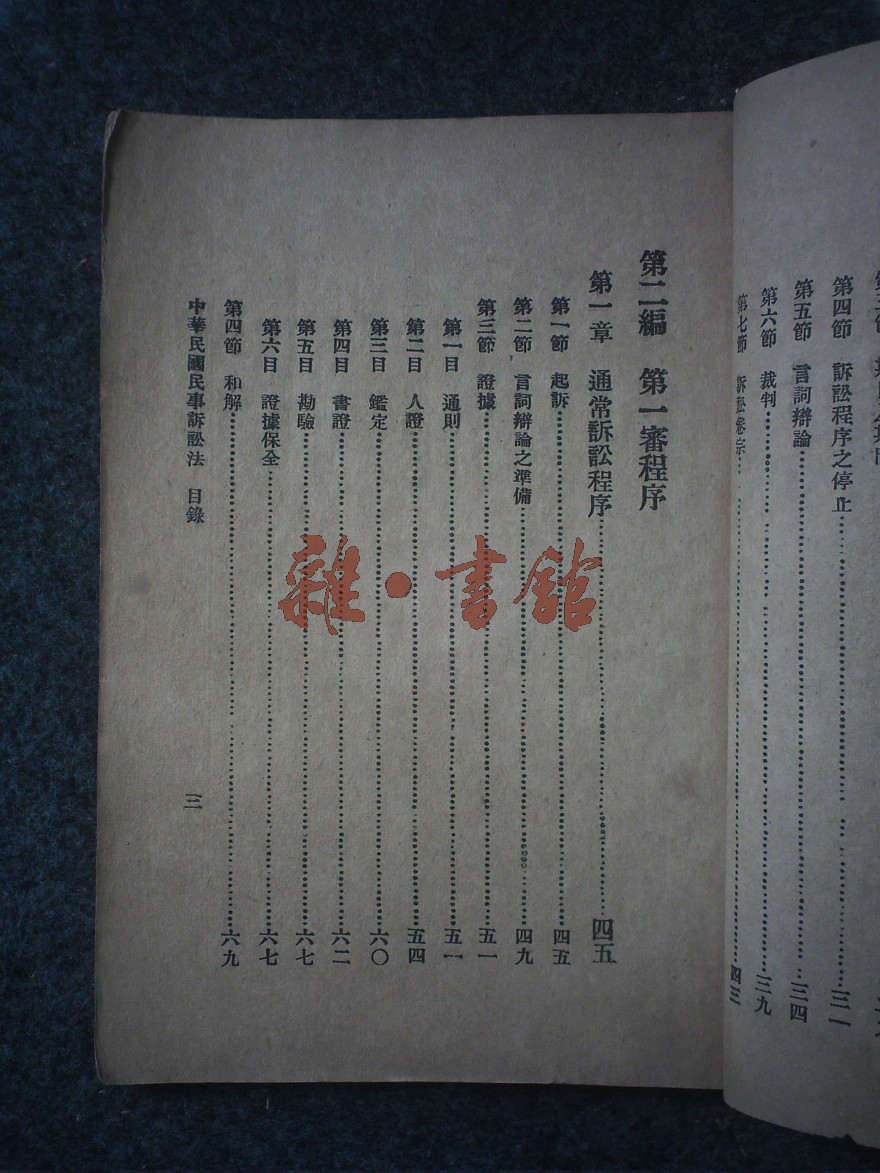 第四節　訴訟程序之停止……三一
第五節　言詞辯論……三四
第六節　裁判……三九
第七節　訴訟卷宗……四三
第二編　第一審程序
第一章　通常訴訟程序……四五
第一節　起訴……四五
第二節　言詞辯論之準備……四九
第三節　證據……五一
第一目　通則……五一
第二目　人證……五四
第三目　鑑定……六〇
第四目　書證……六二
第五目　勘驗……六七
第六目　證據保全……六七
第四節　和解……六九
中華民國民事訴訟法　目錄
三
雜·書館